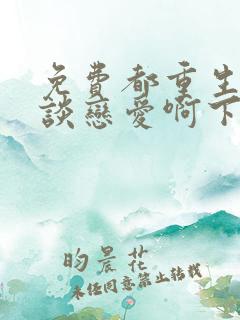 免費都重生
談戀愛啊下
昀晨花
未經同意禁止轉載